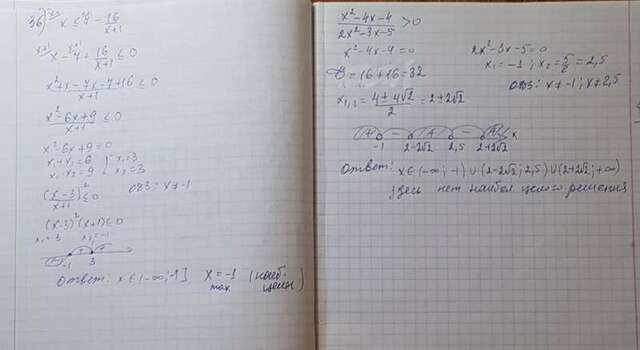 36) x ≤ 4 - 16/(x+1)
x - 4 + 16/(x+1) ≤ 0
(x²+x-4x-4+16)/(x+1) ≤ 0
(x²-6x+9)/(x+1) ≤ 0
x²-6x+9=0
x₁+x₂=6 { x₁=3
x₁·x₂=9 x₂=3
(x-3)²/(x+1) ≤ 0 ОДЗ: x≠-1
(x-3)²(x+1)≤0
x₁=3 x₂=-1
-1 3
Ответ: x∈(-∞;-1] x=-1 (наиб.
max целый)
(x²-4x-4)/(2x²-3x-5) >0
x²-4x-4=0 2x²-3x-5=0
D=16+16=32 x₁=-1; x₂=5/2=2,5
ОДЗ: x≠-1; x≠2,5
x₁,₂=(4±4√2)/2=2±2√2
-1 2-2√2 2,5 2+2√2 x
Ответ: x∈(-∞;-1)∪(2-2√2;2,5)∪(2+2√2;+∞)
Здесь нет наибол целого решения